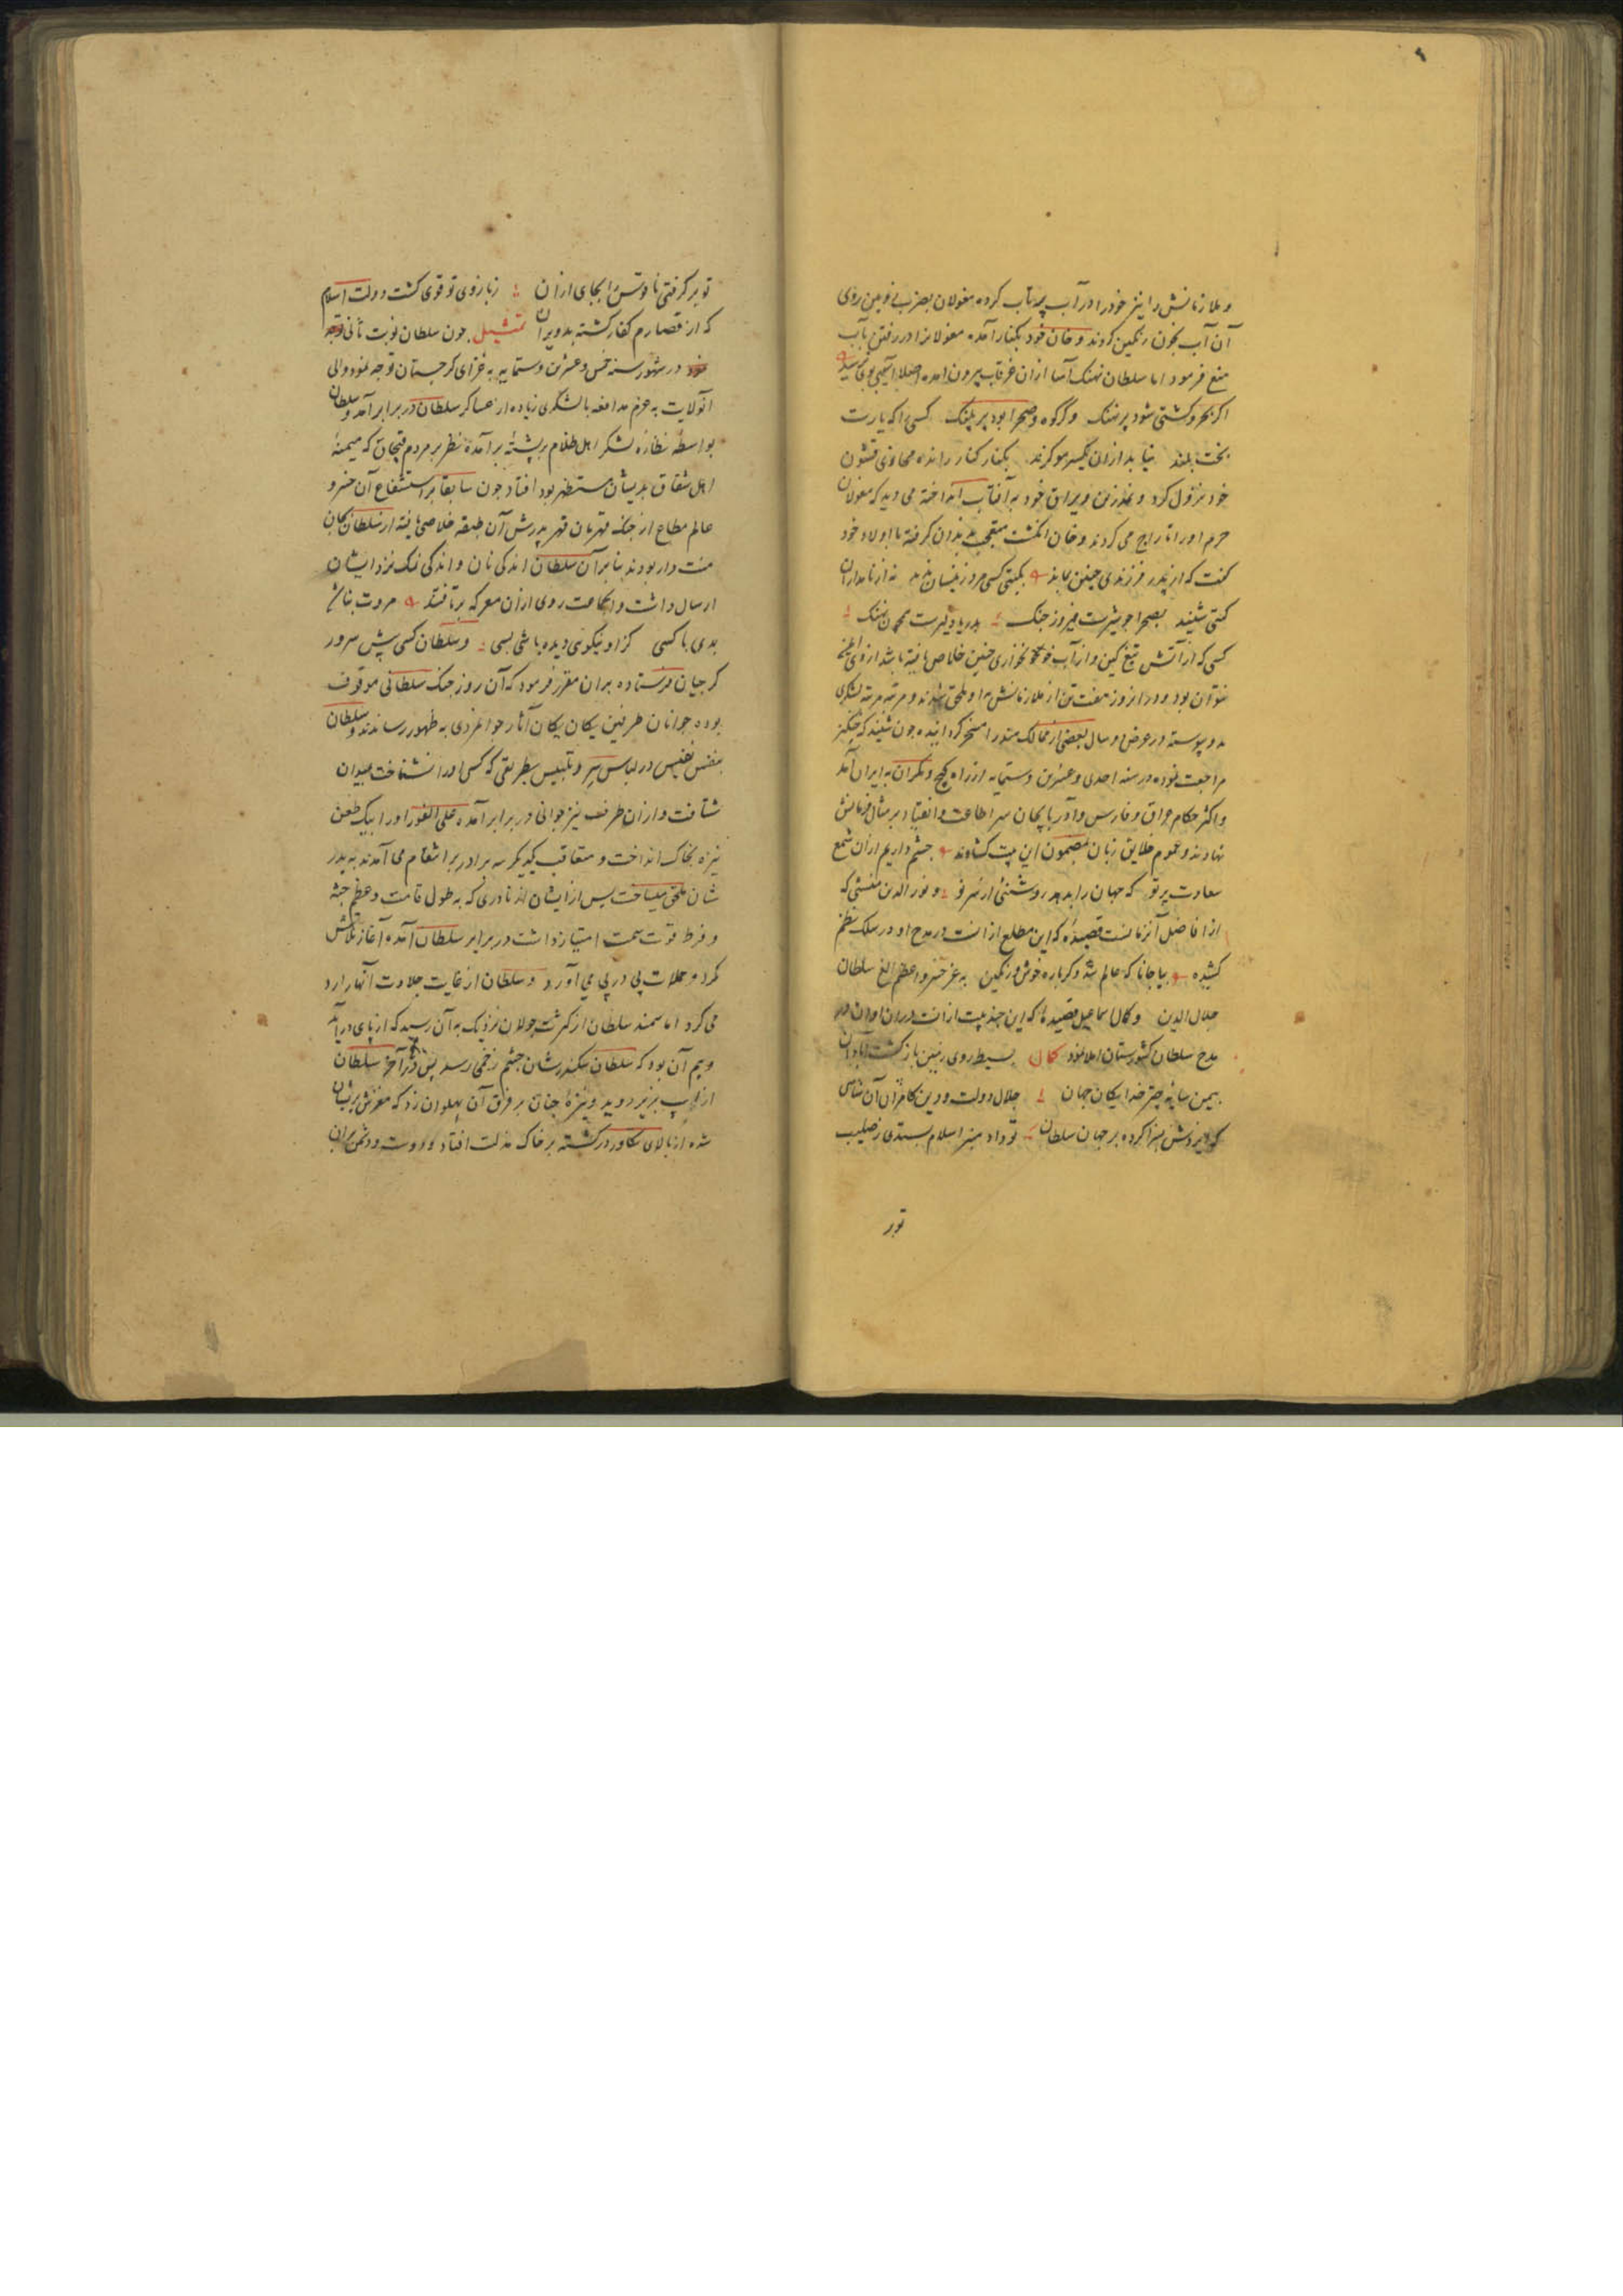 و ملازمانش را نیز خود را در آب پرتاب کرده مغولان بضرب
آن آب بخون رنگین کردند و خان خود بکنار آمده مغولانرا در رفتن بآب
منع فرمود اما سلطان نهنک آسا ازان غرقاب بیرون آمده اصلا آسیبی بوی نرسید
اکر بحر و کشتی شود پر نهنک و کر کوه و صحرا بود پر پلنک کسی را که یارست
بخت بلند نیابد ازان یکسر مو کزند بکنار کنار رانده محاذی قشون
خود نزول کرد و نمد زین و یراق خود به آفتاب انداخته می دید که مغولان
حرم او را تاراج می کردند و خان انکشت تعجب بدندان کرفته با اولاد خود
کفت که از پدر فرزندی چنین بماند بکیتی کسی مرد زینسان ندید نه از نامداران
کیتی شنید بصحرا چو شیرست فیروز جنک بدریا دلیرست همچون نهنک
کسی که از آتش تیغ کین و از آب خونخواری چنین خلاص یافته باشد از وی ایمن
نتوان بود و در انروز هفت تن از ملازمانش باو ملحق شدند و مرتبه مرتبه لشکری
بدو پیوسته در عرض دو سال بعضی از ممالک هند را مسخر کردانیده چون شنید که چنکیز
مراجعت نموده در سنه احدی و عشرین و ستمایه از راه کیچ و مکران به ایران آمد
و اکثر حکام عراق و فارس و آذربایجان سر اطاعت و انقیاد بر مثال فرمانش
نهادند و عموم خلایق زبان بمضمون این بیت کشادند چشم داریم ازان شمع
سعادت پرتو که جهان را بدهد روشنئی از سر نو و نور الدین منشی که
از افاضل آنزمانست قصیدهٔ که این مطلع ازانست در مدح او در سلک نظم
کشیده بیا جانا که عالم شد دکرباره خوش و رنکین به عز خسرو اعظم الغ سلطان
جلال الدین و کمال اسماعیل قصیدهٔ که این چند بیت ازانست دران اوان در
مدح سلطان کشورستان املا نمود کمال بسیط روی زمین باز کشت آبادان
بیمن سایهٔ چتر خدایکان جهان جلال دولت و دین کامران آن شاهی
که ایزدش بسزا کرده بر جهان سلطان تو داد منبر اسلام بستدی ز صلیب
تو بر
تو بر کرفتی ناقوس را بجای اذان ز بازوی تو قوی کشت دولت اسلام
که از تصادم کفار کشته بد ویران تمثیل چون سلطان نوبت ثانی
در شهور سنه خمس و عشرین و ستمایه به غزای کرجستان توجه نمود والی
آنولایت به عزم مدافعه با لشکری زیاده از عساکر سلطان در برابر آمد و سلطان
بواسطهٔ نظارهٔ لشکر اهل ظلام بر پشتهٔ بر آمده نظر بر مردم قبچاق که میمنهٔ
اهل شقاق بدیشان مستظهر بود افتاد چون سابقا بر استشفاع آن خسرو
عالم مطاع از چنک قهرمان قهر پدرش آن طبقه خلاصی یافته از سلطان بجان
منت دار بودند بنابر آن سلطان اندکی نان و اندکی نمک نزد ایشان
ارسال داشت و انجماعت روی ازان معرکه برتافتند مروت نباشد
بدی با کسی کزو نیکوئی دیده باشی بسی و سلطان کسی پیش سرور
کرجیان فرستاده بران مقرر فرمود که آن روز جنک سلطانی موقوف
بوده جوانان طرفین یکان یکان آثار جوانمردی به ظهور رسانند و سلطان
بنفس نفیس در لباس ستر و تلبیس بطریقی که کسی او را نشناخت بمیدان
شتافت و ازان طرف نیز جوانی در برابر آمده علی الفور او را بیک طعن
نیزه بخاک انداخت و متعاقب یکدیکر سه برادر بر انتقام می آمدند به پدر
شان ملحق میساخت پس از ایشان که به طول قامت و عظم جثه
و فرط قوت سمت امتیاز داشت در برابر سلطان آمده آغاز تلاش
کرد و حملات پی در پی می آورد و سلطان از غایت جلادت آنها را رد
می کرد اما سمند سلطان از کثرت جولان نزدیک به آن رسید که از پای درآید
و بیم آن بود که سلطان سکندرشان چشم زخمی رسد آخر سلطان
از اسپ بزیر دوید و نیزهٔ چنان بر فرق آن پهلوان زد که مغزش پریشان
شده از بالای تکاور درکشته بر خاک مذلت افتاد و دوست و دشمن بران